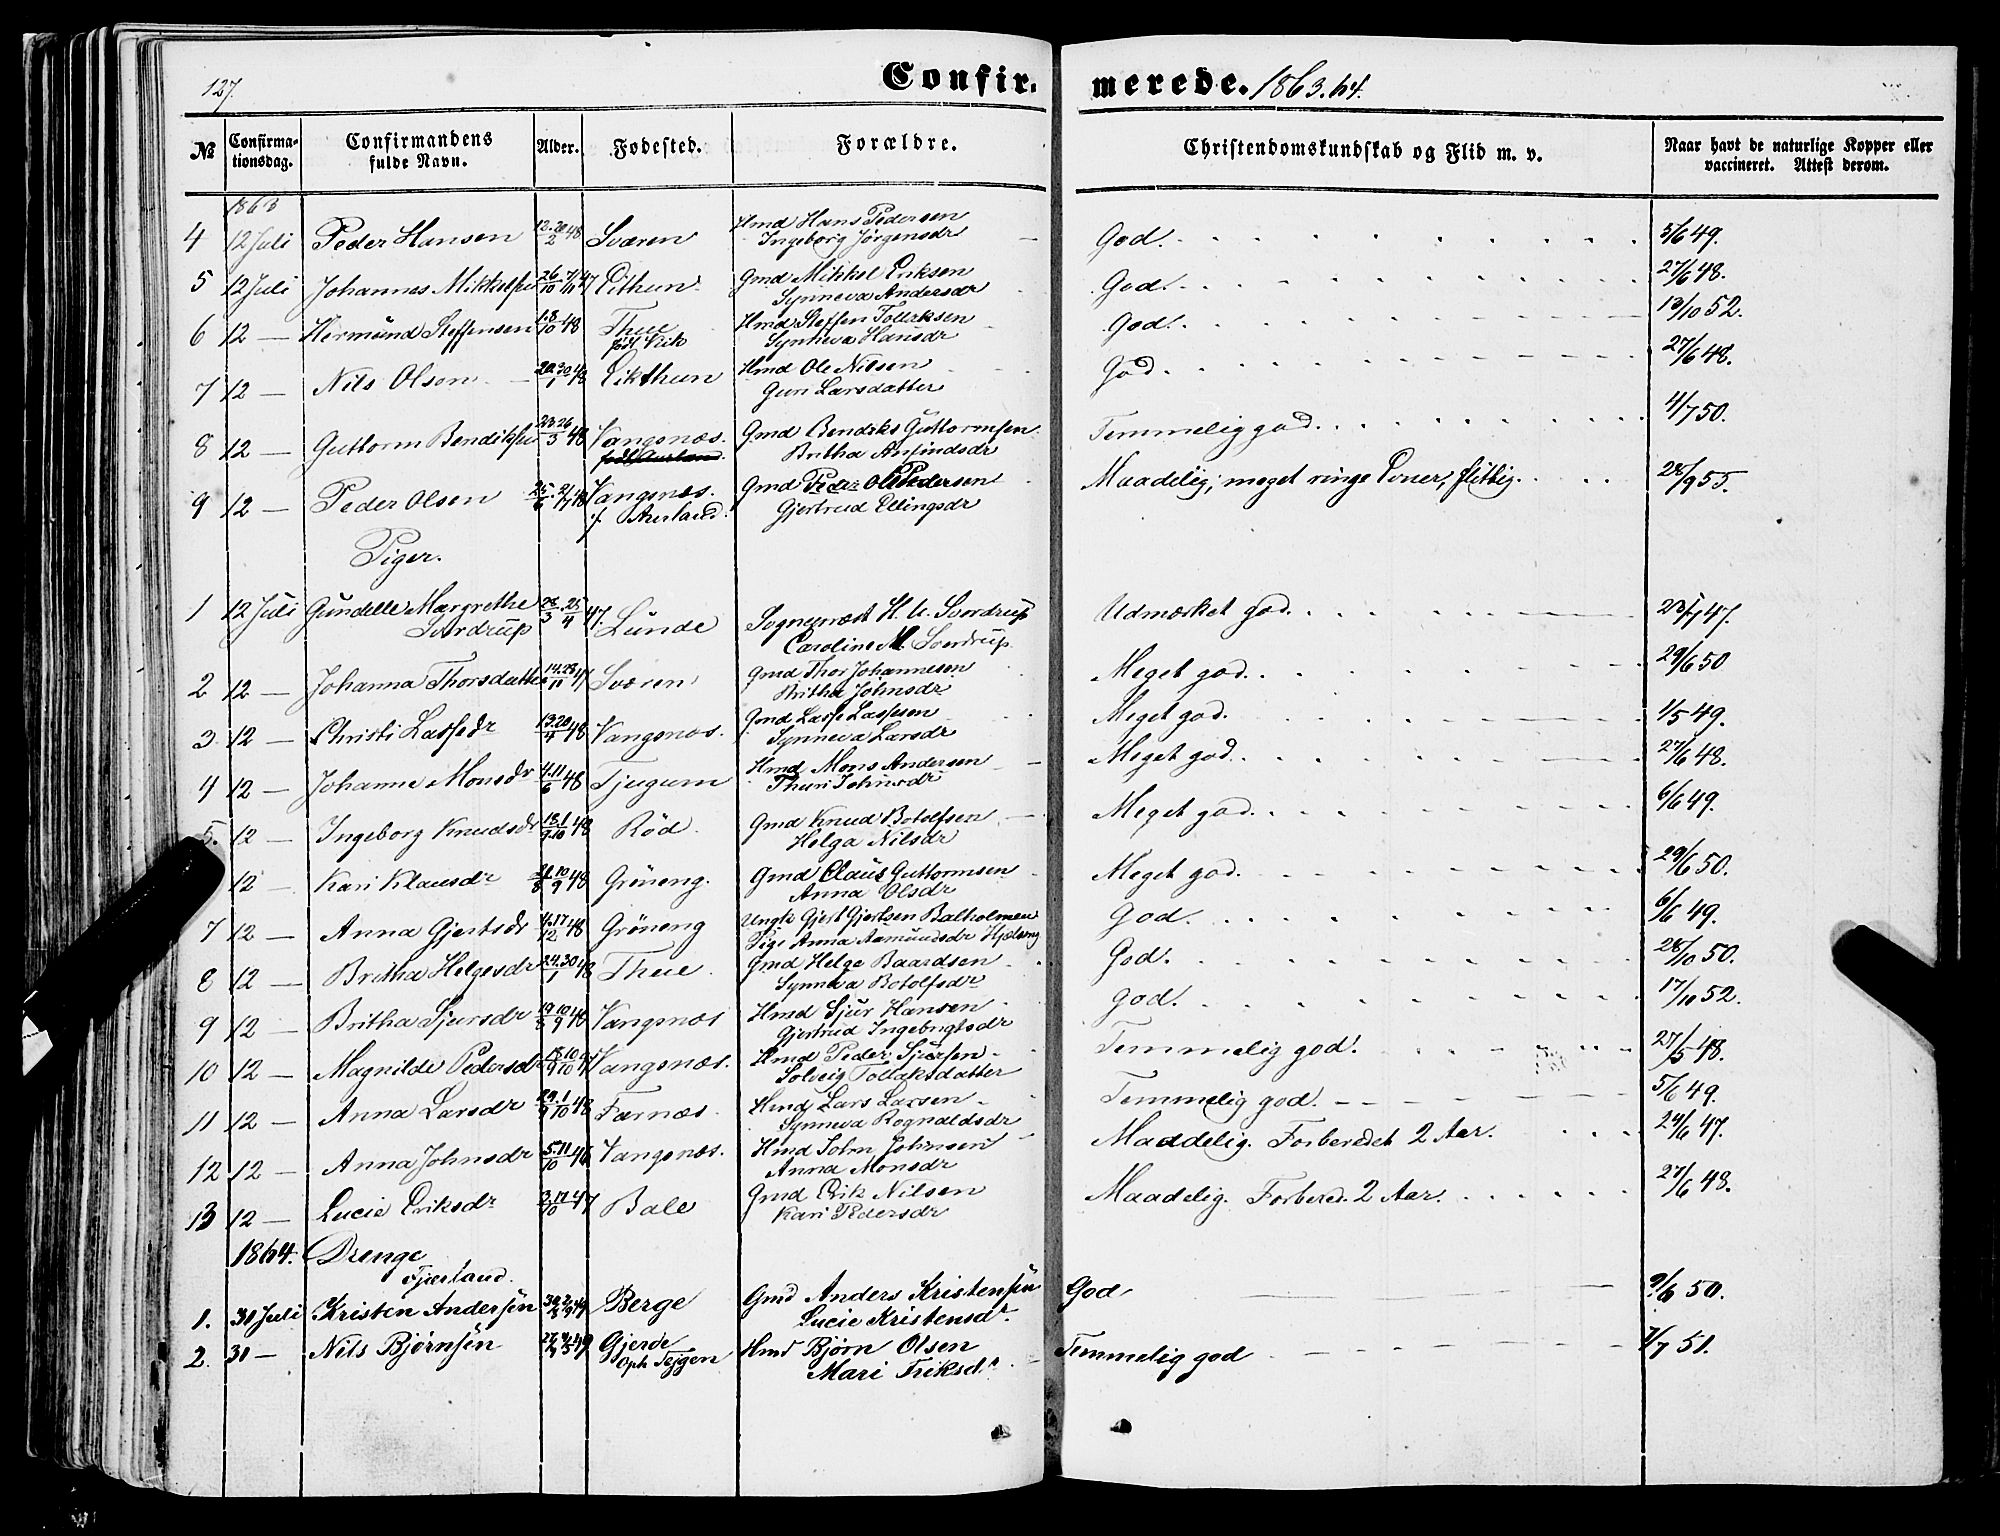 127.
Confir. merede. 1863.64.
№ Confirmationsdag. Confirmandens fulde Navn. Alder. Fødested. Forældre. Christendomskundskab og Flid m. v. Naar havt de naturlige Kopper eller vaccineret. Attest derom.
1863
4 12 Juli Peder Hansen 12.20/2 48 Sværen Hmd Hans Pedersen God. 5/6 49.
Ingeborg Jørgensdr
5 12 Juli Johannes Mikkelsen 26/10 7/11 47 Eithun Gmd Mikkel Eriksen God. 27/6 48.
Synneva Andersdr
6 12 — Hermund Steffensen 1.8/10 48 Thue Hmd Steffen Tollefsen God. 19/10 52.
født Viik Synneva Hansdr
7 12 — Nils Olsen 20.30/1 48 Eikthun Hmd Ole Nilsen God. 27/6 48.
Guri Larsdatter
8 12 — Guttorm Bendiksen 23.26/3 48 Vangsnæs. Gmd Bendiks Guttormsen Temmelig god. 4/7 50.
født Aurland. Britha Arfindsdr
9 12 — Peder Olsen 25/6 2/7 48 Vangsnæs. Gmd Peder Ole Pedersen Maadelig, meget ringe Evner, flittig. 28/9 55.
f. Aurland. Gjertrud Ellingsdr
Piger.
1 12 Juli Gundelle Margrethe 26/3 25/4 47. Lunde Sogneprest H. U. Sverdrup Udmærket god. 23/7 47.
Sverdrup Caroline M. Sverdrup.
2 12 — Johanna Thorsdatter 14.28/11 47 Sværen Gmd Thor Johannesen Meget god. 29/6 50
Britha Johnsdr
3 12 — Christi Lassesdr 13.20/4 48 Vangsnæs. Gmd Lasse Lassesen Meget god. 1/5 49.
Synneva Larsdr
4 12 — Johanne Monsdr 4.11/6 48 Tjugum Hmd Mons Andersen Meget god. 27/6 48.
Thuri Johnsdr
5. 12 — Ingeborg Knudsdr 18.1/9.10 48 Rød. Gmd Knud Botolfsen Meget god. 6/6 49.
Helga Nilsdr
12 — Kari Klausdr 21.10/8 9 48 Grøneng. Gmd Claus Guttormsen Meget god. 29/6 50.
Anna Olsdr
7 12 — Anna Gjertsdr 4.17/12 48 Grøneng Ungk Gjert Gjertsen Balholmen God. 6/6 49.
Pige Anna Aamundsdr Hjelseng
8 12 — Britha Helgesdr 24.30/1 48 Thue. Gmd Helge Baardsen God. 28/10 50.
Synneva Botolfsdr
9 12 — Britha Sjursdr 19.10/8 9 48 Vangsnæs Hmd Sjur Hansen God. 17/10 52.
Gjertrud Ingebrigtsdr
10 12 — Magnilde Pedersdr 18.10/9 10 47 Vangsnæs. Hmd Peder Sjursen Temmelig god. 27/5 48.
Solveig Tollaksdatter
11 12 — Anna Larsdr 29.1/9 10 48 Farnæs. Hmd Lars Larsen Temmelig god. 5/6 49.
Synneva Rognaldsdr
12 12 — Anna Johnsdr 5.11/10 46 Vangsnæs. Hmd John Johnsen Maadelig. Forberedet 2 Aar. 24/6 47.
Anna Monsdr
13 12 — Lucie Eriksdr 3.17/10 47 Bale Gmd Erik Nilsen Maadelig. Forbered. 2 Aar. 27/6 48.
Kari Pedersdr
1864. Drenge
Fjærland.
1. 31 Juli Kristen Andersen Berge Gmd Anders Kristensen God 9/6 50.
Lucie Kristensdr.
2. 31 — Nils Bjørnsen Gjerde Hmd Bjørn Olsen Temmelig god 7/7 51.
Oph Tejgen Mari Eriksdr